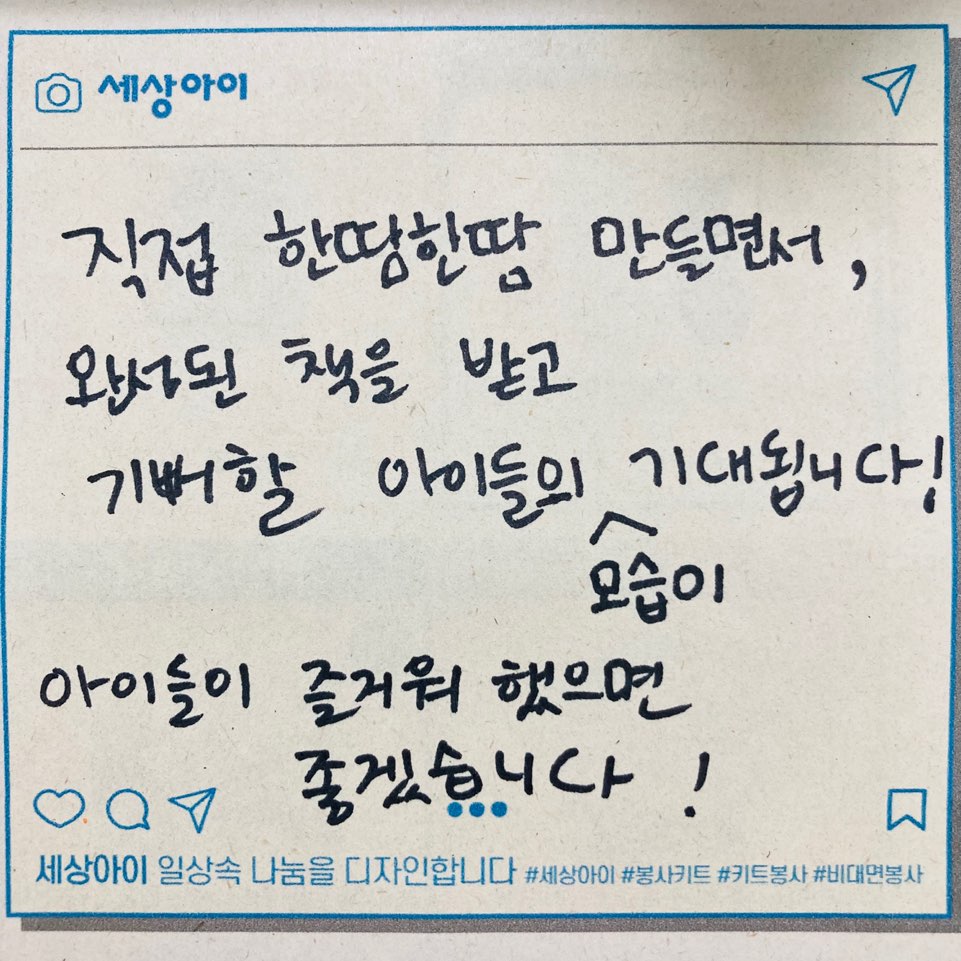 세상아이
직접 한땀한땀 만들면서,
완성된 책을 받고
기뻐할 아이들의 기대됩니다!
모습이
아이들이 즐거워 했으면
좋겠습니다 !
세상아이 일상속 나눔을 디자인합니다 #세상아이 #봉사키트 #키트봉사 #비대면봉사